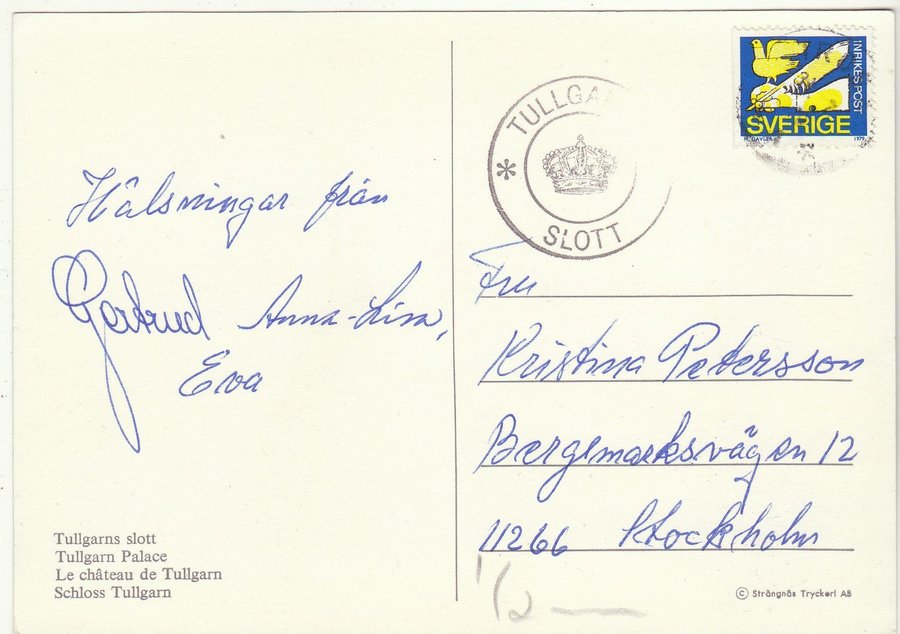 Hälsningar från
Gertrud Anna-Lisa,
Eva
Tullgarns slott
Tullgarn Palace
Le château de Tullgarn
Schloss Tullgarn
TULLGA
* SLOTT
INRIKES POST
SVERIGE
1979
Fru
Kristina Petersson
12
11266 Stockholm
1/2 —
© Strängnäs Tryckeri AB